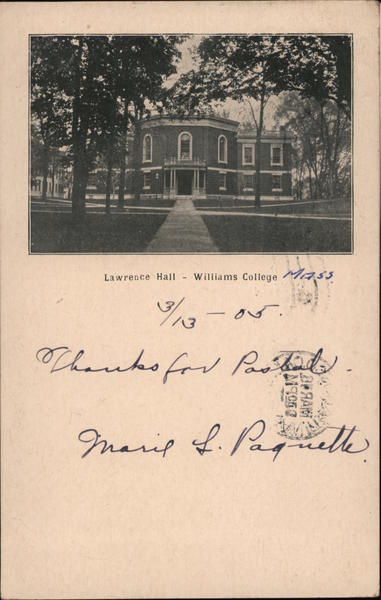 Lawrence Hall - Williams College Mass
3/13 - 05.
Thanks for Postal.
Marie L. Paquette.